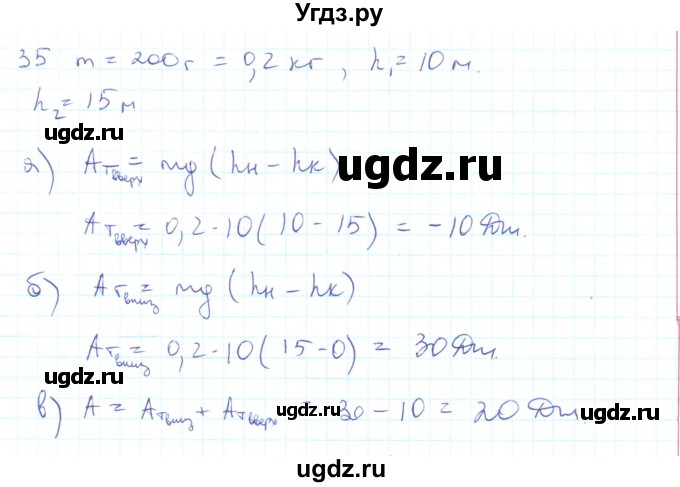 Угдз.ру
35 m = 200 г = 0,2 кг , h₁ = 10 м.
h₂ = 15 м
ugdz.ru
ugdz.ru
а) Aт вверх = mg (hн − hк)
Aт вверх = 0,2 · 10 ( 10 − 15 ) = −10 Дж.
ugdz.ru
ugdz.ru
б) Aт вниз = mg (hн − hк)
Aт вниз = 0,2 · 10 ( 15 − 0 ) = 30 Дж.
ugdz.ru
ugdz.ru
в) A = Aт вниз + Aт вверх = 30 − 10 = 20 Дж.
ugdz.ru
ugdz.ru
ugdz.ru